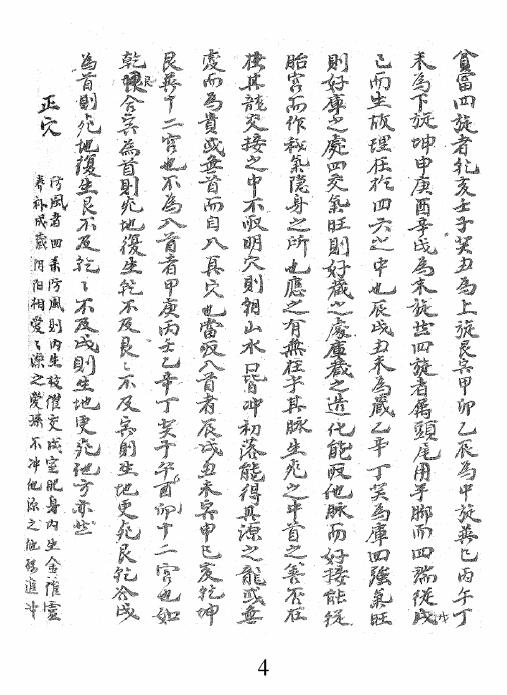 貧富四旋者乾亥壬子癸丑為上旋艮寅甲卯乙辰為中旋巽巳丙午丁
未為下旋坤申庚酉辛戌為末旋此四旋者為頭尾用手脚而四端從戌
已而生故理在於四六之中也辰戌丑未為藏乙辛丁癸為庫四強氣旺
則好庫之處四交氣旺則好藏之處庫藏之造化能取他脉而好接能從
胎宮而作秘氣隱身之所也應之有無在乎其脉生死之中首之善否在
其龍交接之中不取明穴則朝山水口皆冲初落能得其源之龍或無
变而為貴或無首而自入真穴也當取入首者辰戌丑未寅申巳亥乾坤
艮巽十二宮也不為入首者甲庚丙壬乙辛丁癸子午酉卯十二宮也如
乾艮合寅為首則死地復生乾不及艮艮不及寅則生地更死艮乾合戌
為首則死地復生艮不及乾乾不及戌則生地更死他方亦然
正穴
防風者四季防風則內生枝灌交成室肥身內生金灌靈
養朴成藏陰陽相愛愛深之愛深不冲他源之